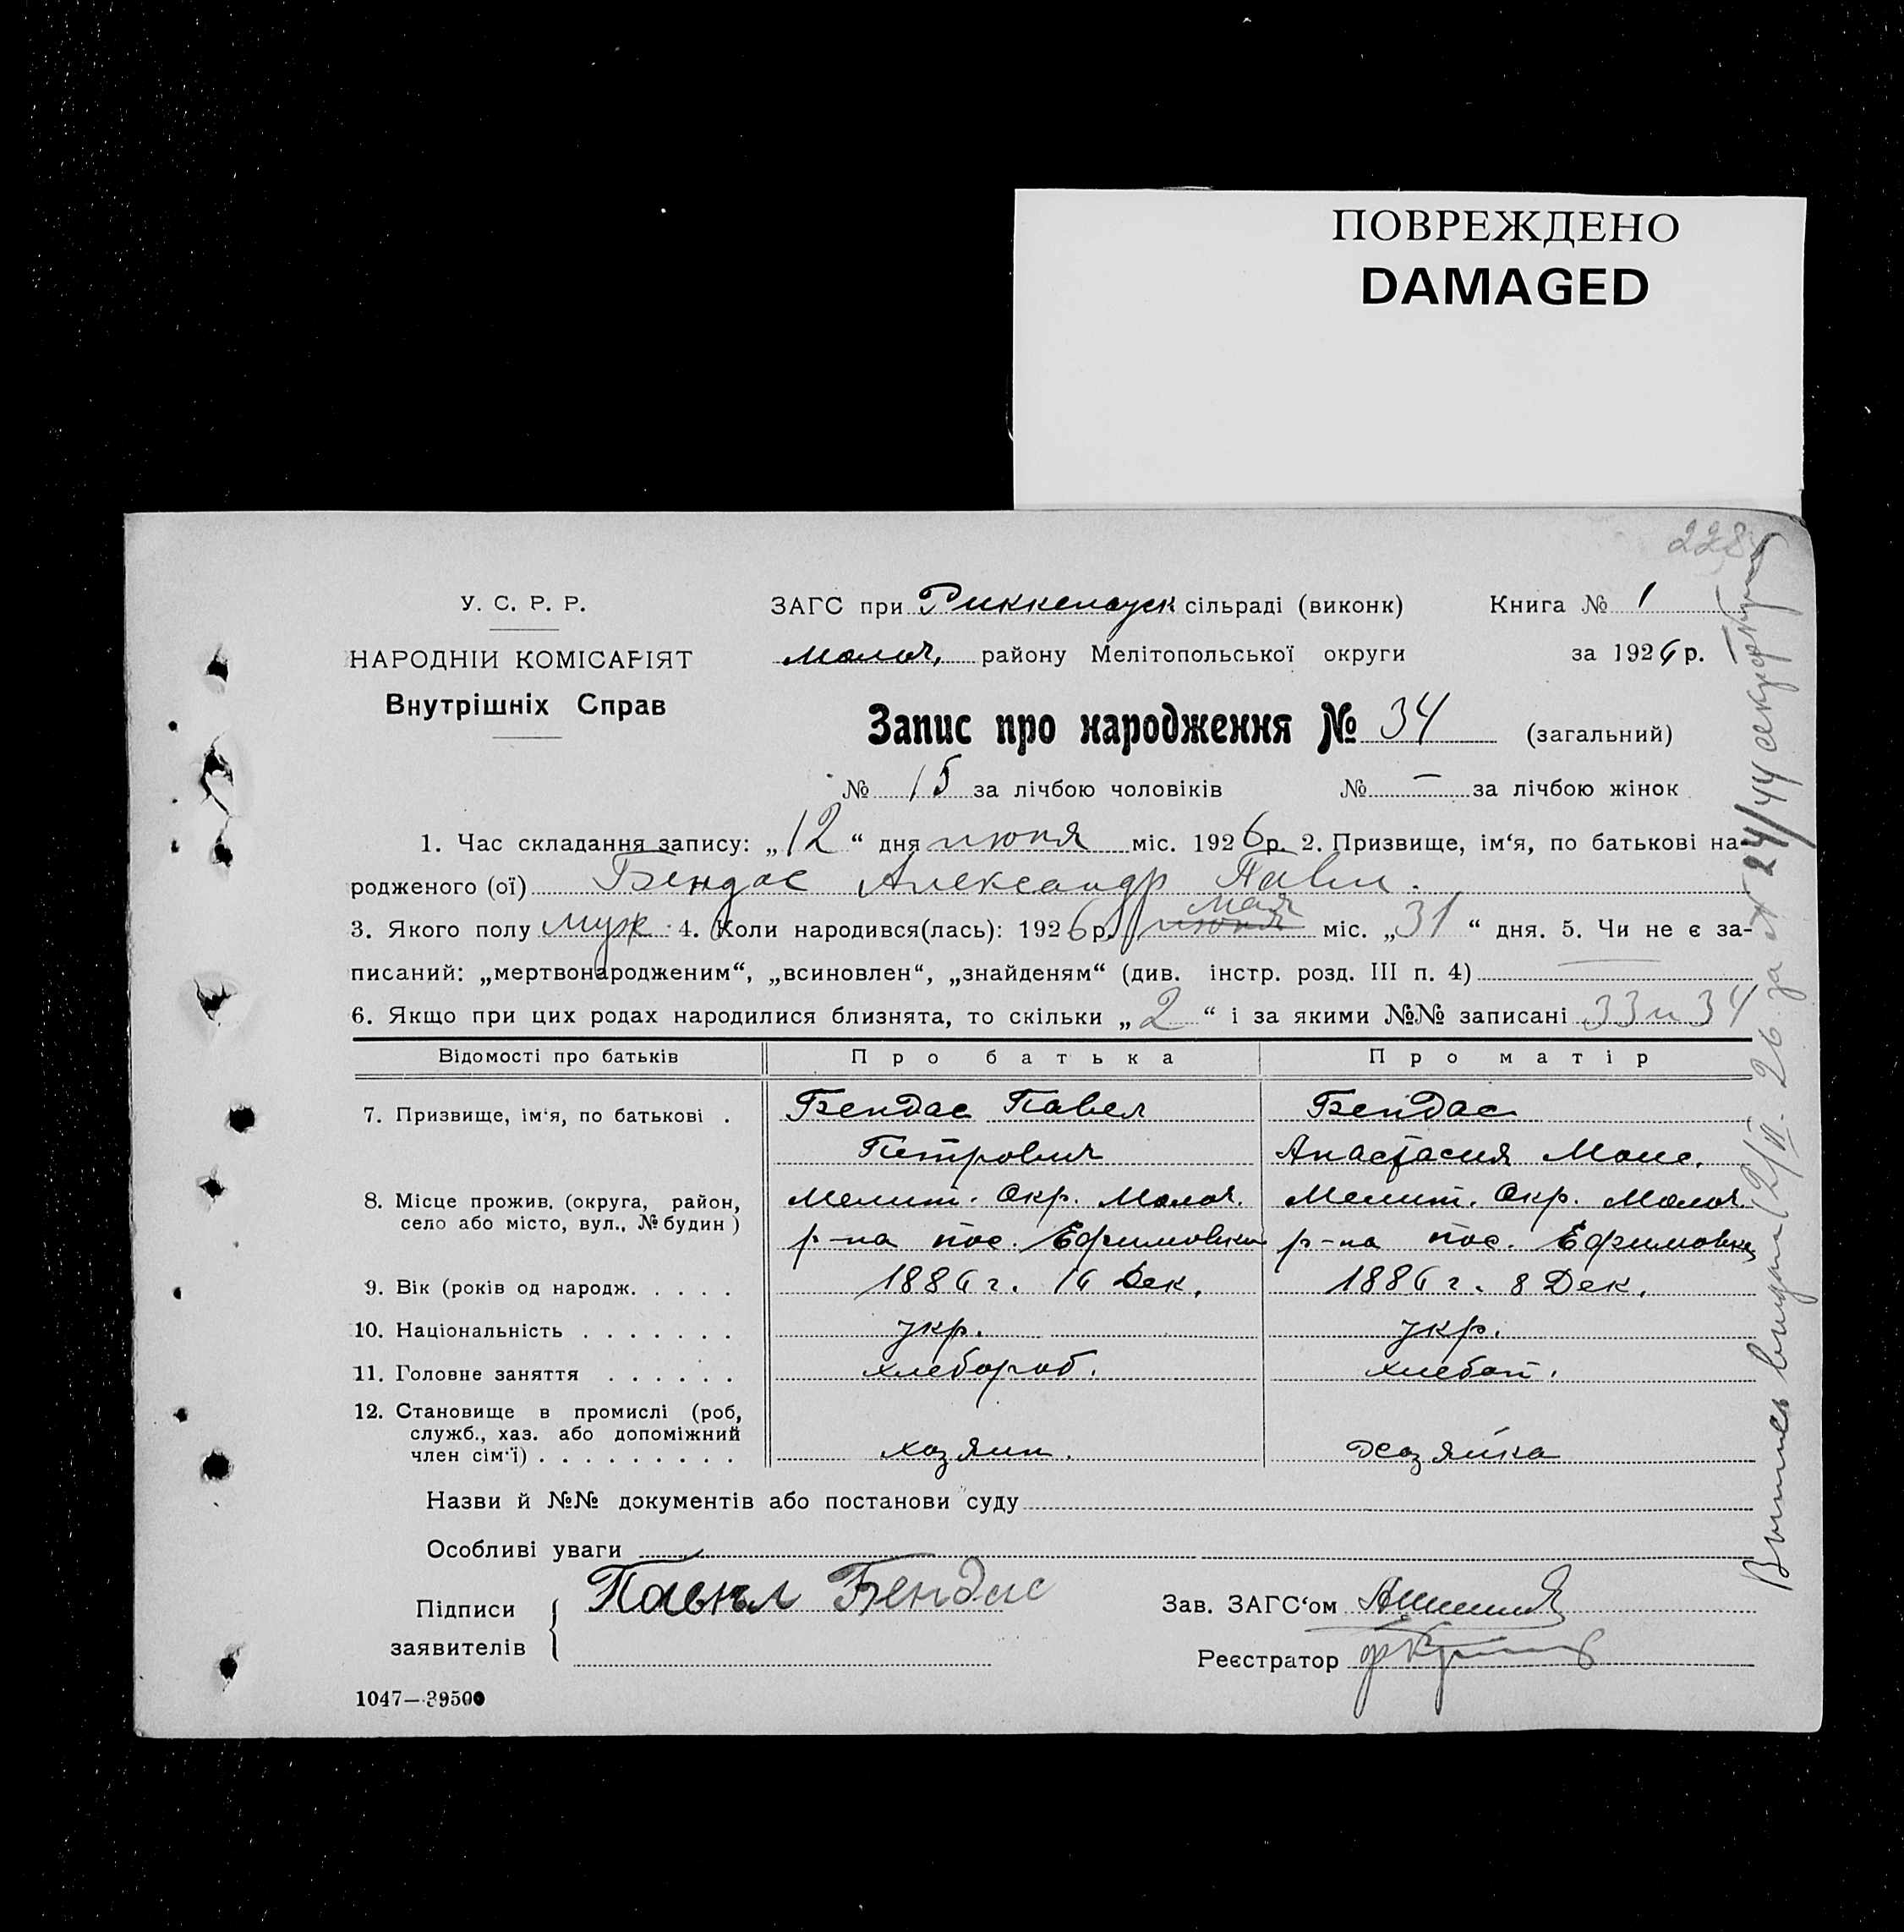 ПОВРЕЖДЕНО
DAMAGED
228
У. С. Р. Р.
НАРОДНІЙ КОМІСАРІЯТ
Внутрішніх Справ
ЗАГС при Риккенауск сільраді (виконк) Книга № 1
Молоч. району Мелітопольської округи за 1926 р.
Запис про народження № 34 (загальний)
№ 15 за лічбою чоловіків № — за лічбою жінок
1. Час складання запису: „12“ дня июня міс. 1926 р. 2. Призвище, ім'я, по батькові на-
родженого (ої) Бендас Александр Павл.
3. Якого полу муж. 4. Коли народився(лась): 1926 р. июня мая міс. „31“ дня. 5. Чи не є за-
писаний: „мертвонародженим“, „всиновлен“, „знайденям“ (див. інстр. розд. III п. 4)
6. Якщо при цих родах народилися близнята, то скільки „2“ і за якими №№ записані 33 и 34
Відомості про батьків Про батька Про матір
7. Призвище, ім'я, по батькові . Бендас Павел Бендас
Петрович Анастасия Моис.
8. Місце прожив. (округа, район, село або місто, вул., № будин) Мелит. Окр. Молоч. Мелит. Окр. Молоч.
р-на пос. Ефимовки р-на пос. Ефимовки
9. Вік (років од народж. . . . . 1886 г. 16 Дек. 1886 г. 8 Дек.
10. Національність . . . . . . . укр. укр.
11. Головне заняття . . . . . . хлебороб. хлебоп.
12. Становище в промислі (роб,
служб., хаз. або допоміжний
член сім'ї) . . . . . . . . . хозяин. хозяйка
Назви й №№ документів або постанови суду
Особливі уваги
Підписи
заявителів
Павел Бендас
Зав. ЗАГС'ом
Реєстратор
1047—39500
Выпись выдана 12/VI-26 за № 24/44 секр